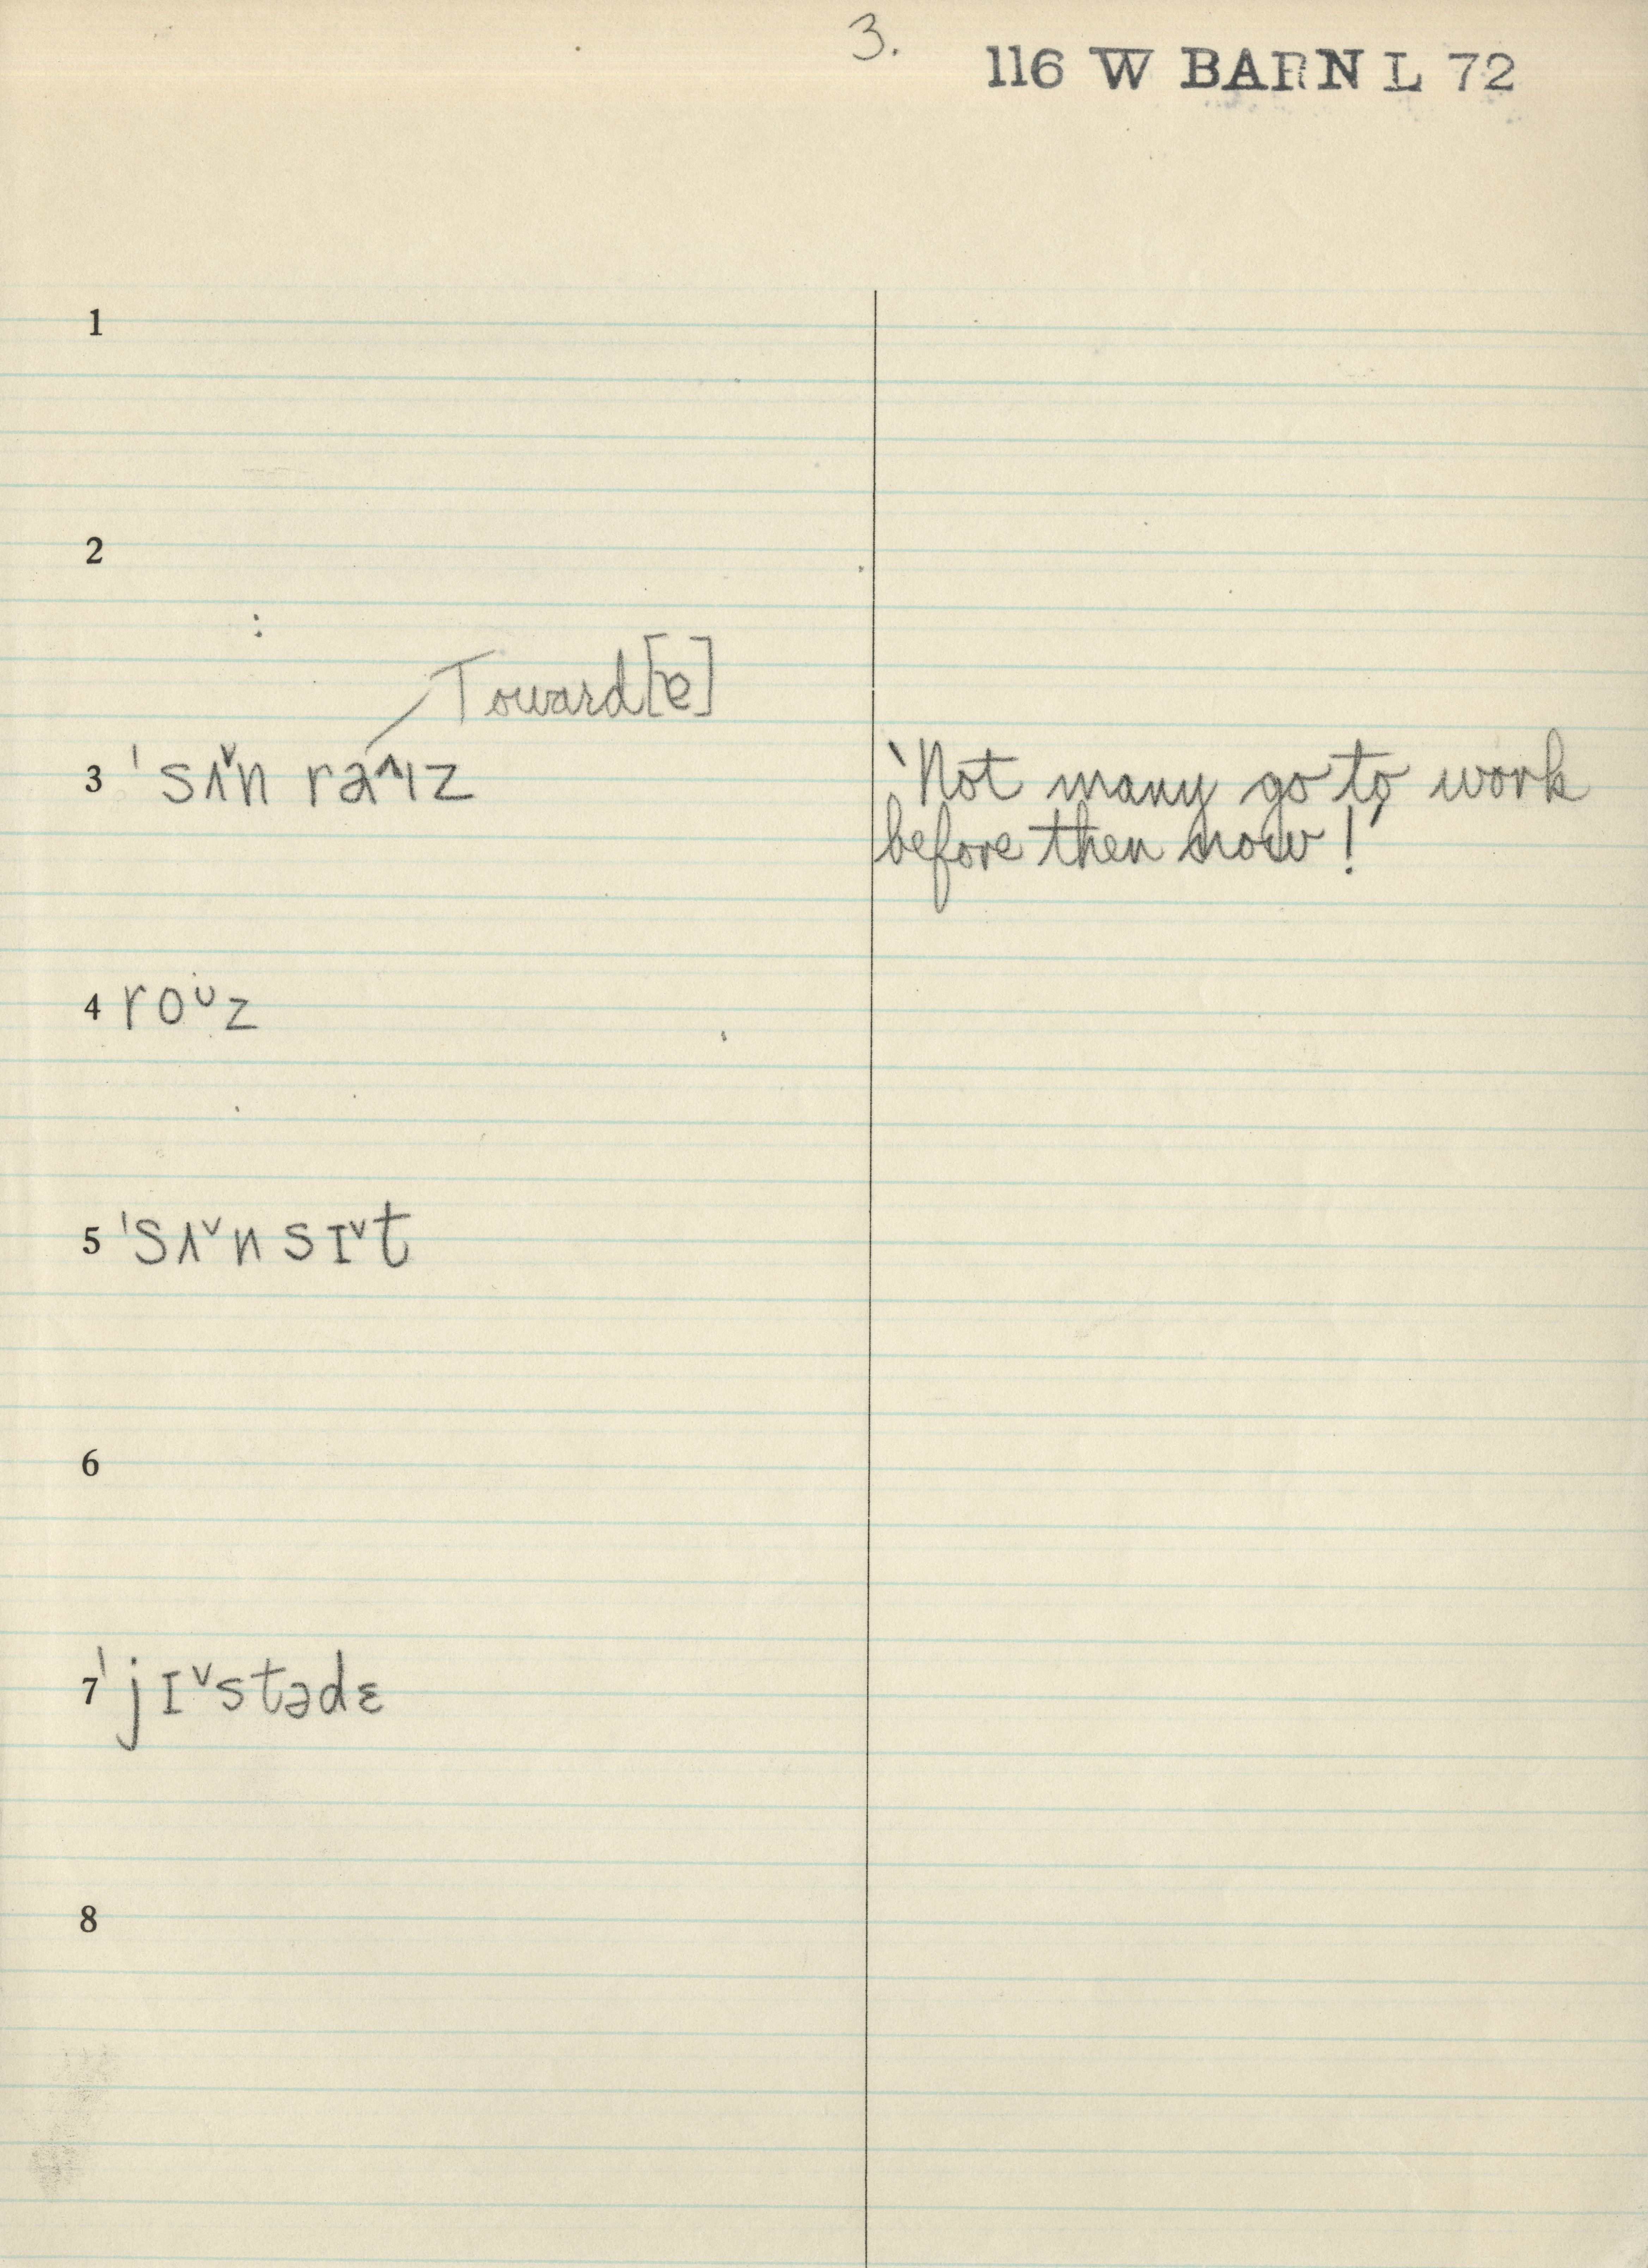 3.
116 W BARN L 72
1
2
Toward [ɐ]
3 ˈsʌ˅n ra˄ɪz
'Not many go to work
before then now!'
4 roᴜz
5 ˈsʌ˅nsɪ˅t
6
7 ˈjɪ˅stədɛ
8